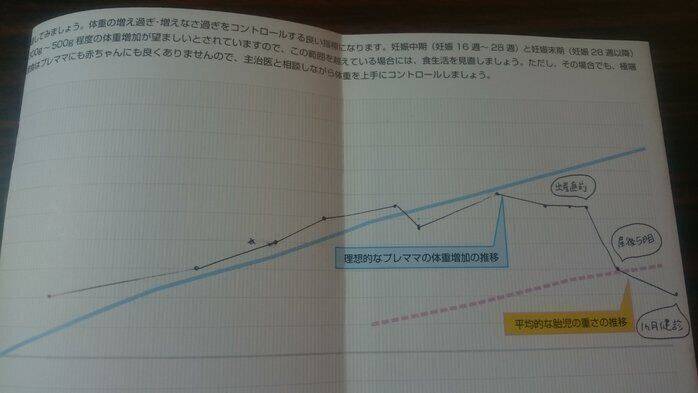 してみましょう。体重の増え過ぎ・増えなさ過ぎをコントロールする良い指標になります。妊娠中期（妊娠16週～28週）と妊娠末期（妊娠28週以降）
00g～500g程度の体重増加が望ましいとされていますので、この範囲を越えている場合には、食生活を見直しましょう。ただし、その場合でも、極端
はプレママにも赤ちゃんにも良くありませんので、主治医と相談しながら体重を上手にコントロールしましょう。
出産直前
産後5日目
理想的なプレママの体重増加の推移
平均的な胎児の重さの推移
1ヶ月健診